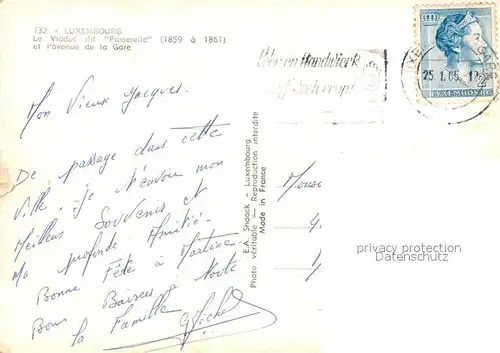 132 - LUXEMBOURG
Le Viaduc dit "Passerelle" (1859 à 1861)
et l'avenue de la Gare
LUXEMBOURG
25.1.65
Mon Vieux Jacques.
De passage dans cette
Ville, je t'envoie mon
Meilleur Souvenir et
Ma profonde Amitié.
Bonne Fête à Martine
Bons Baisers à toute
la Famille
E.A. Snaack - Luxembourg
Photo véritable - Reproduction interdite
Made in France
privacy protection
Datenschutz